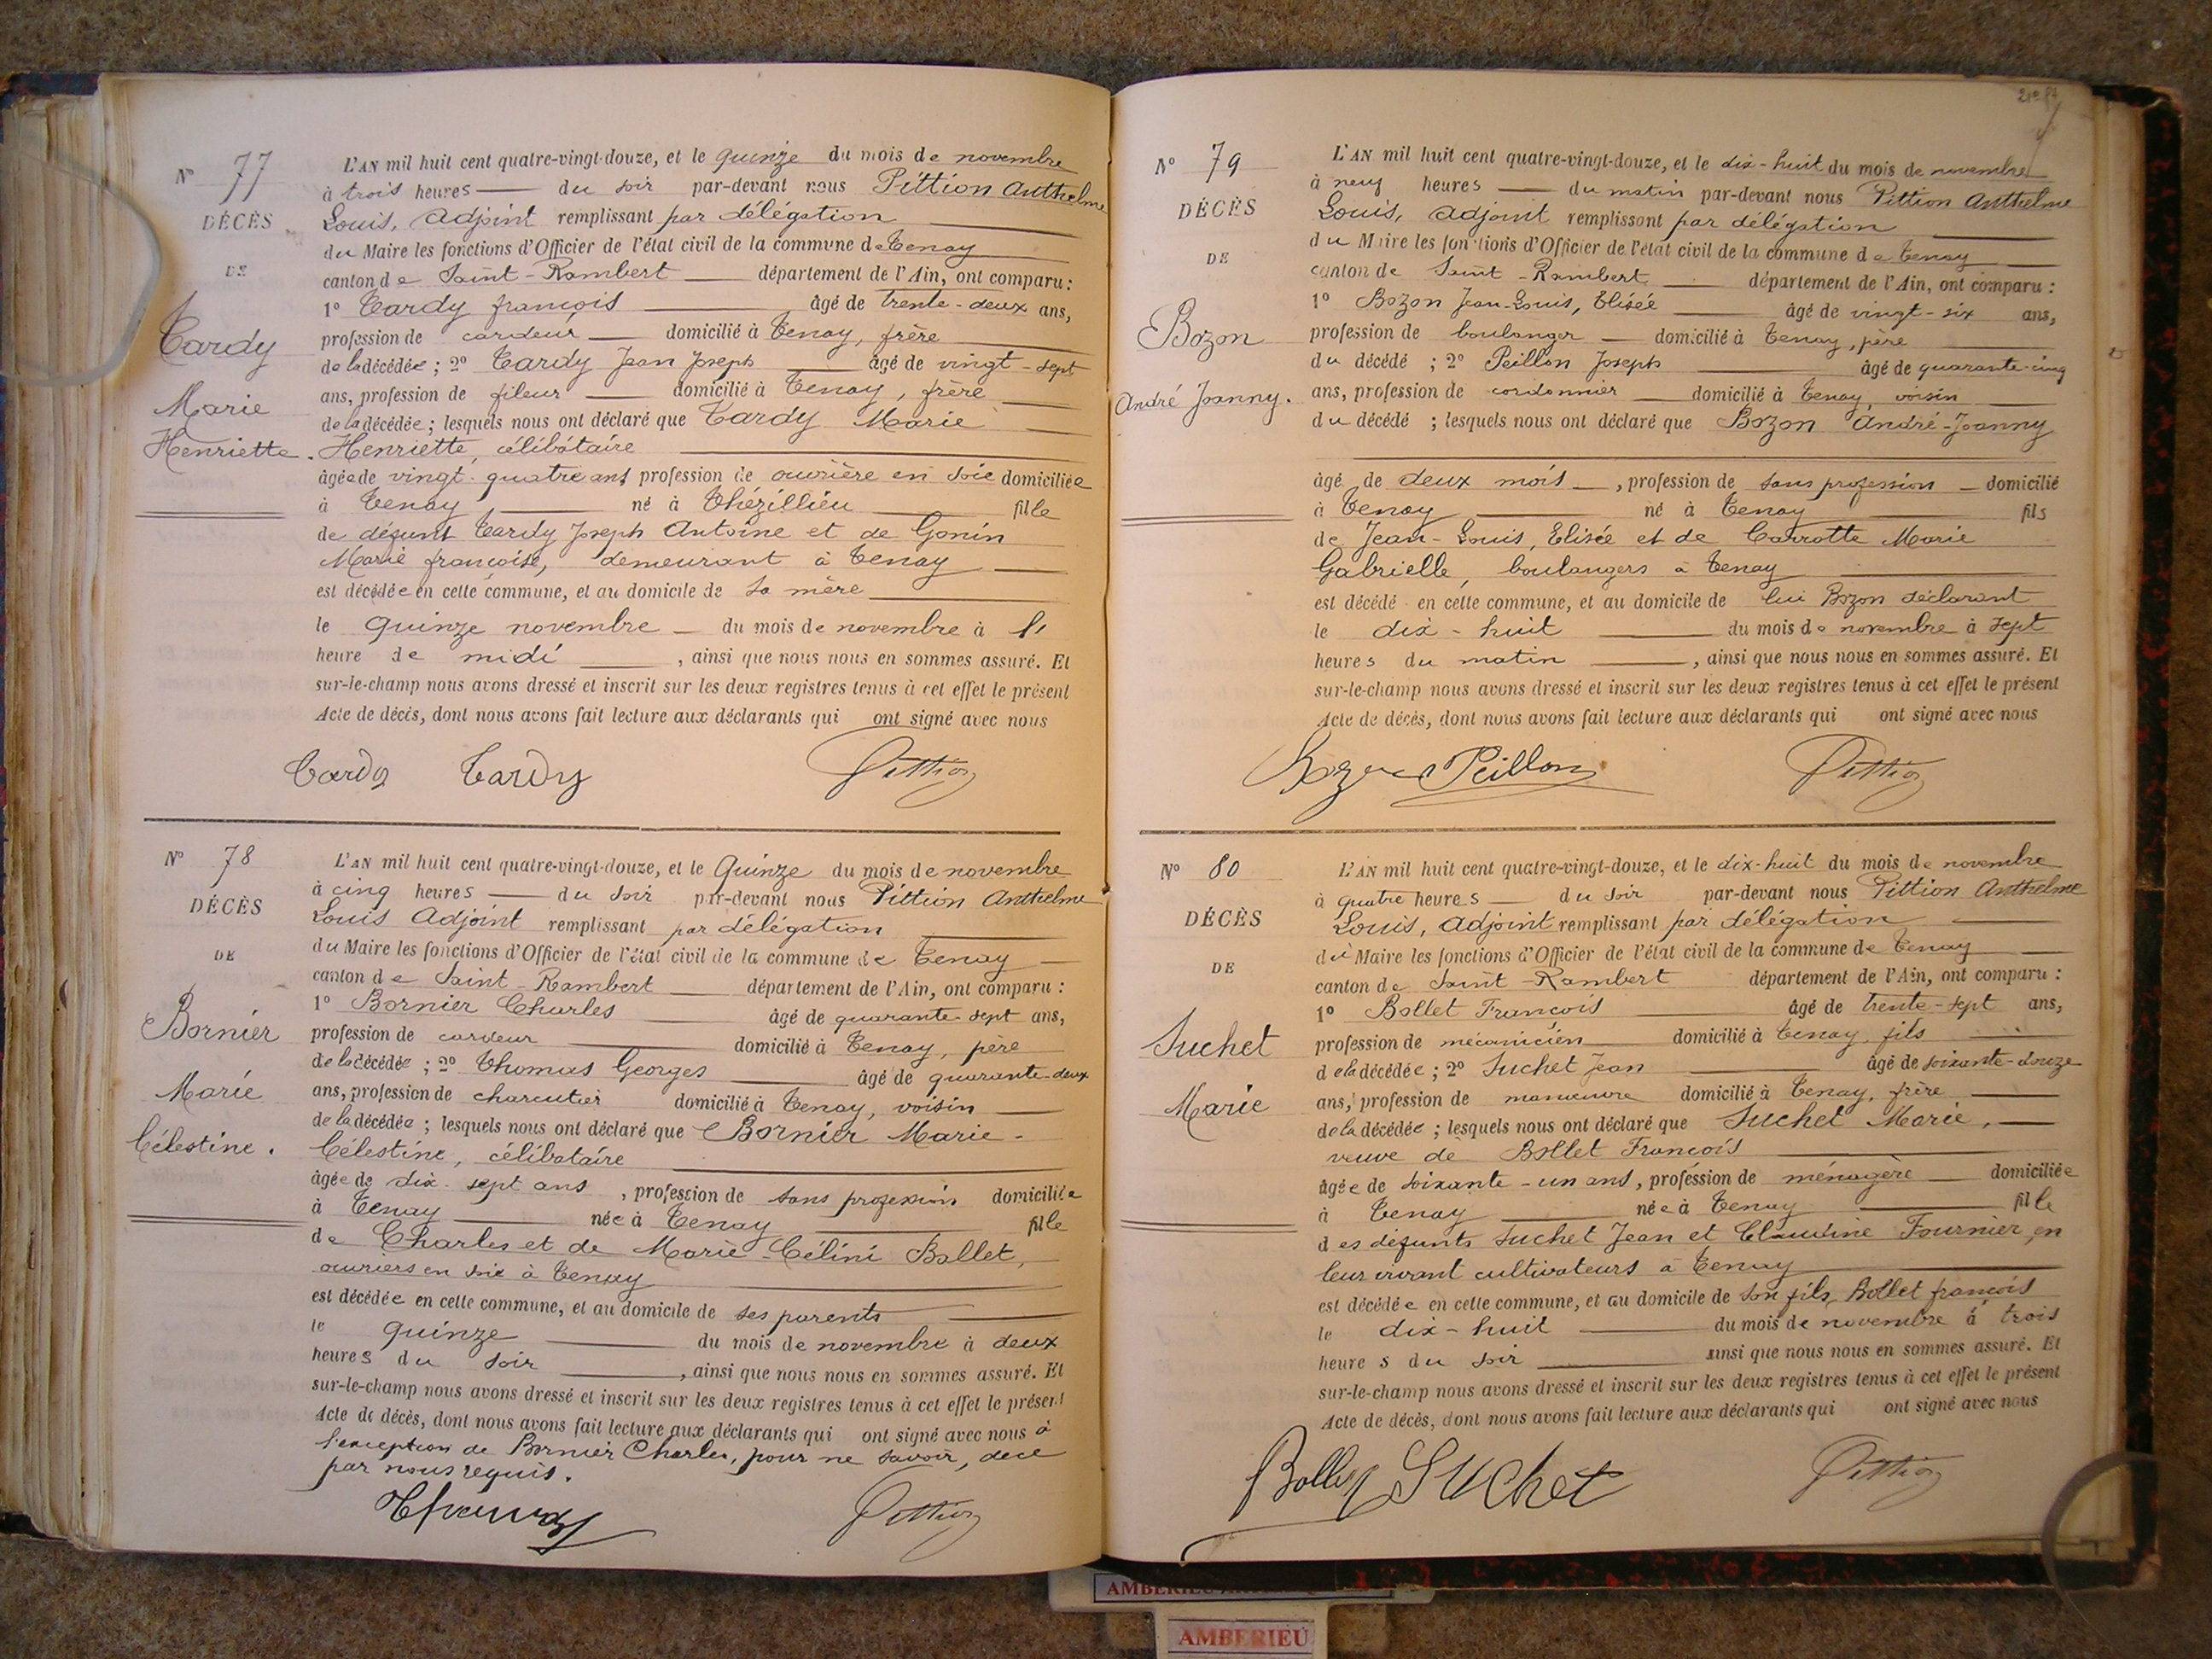 N° 77
DÉCÈS
DE
Tardy
Marie
Henriette.
L'AN mil huit cent quatre-vingt-douze, et le quinze du mois de novembre
à trois heures du soir par-devant nous Pittion Anthelme
Louis, Adjoint remplissant par délégation
du Maire les fonctions d'Officier de l'état civil de la commune de Tenay
canton de Saint-Rambert département de l'Ain, ont comparu :
1° Tardy françois âgé de trente-deux ans,
profession de cardeur domicilié à Tenay, frère
de la décédée ; 2° Tardy Jean Joseph âgé de vingt-sept
ans, profession de fileur domicilié à Tenay, frère
de la décédée ; lesquels nous ont déclaré que Tardy Marie
Henriette, célibataire
âgée de vingt-quatre ans profession de ouvrière en soie domiciliée
à Tenay né à Thézillieu fille
de défunt Tardy Joseph Antoine et de Gonin
Marie françoise, demeurant à Tenay
est décédée en cette commune, et au domicile de sa mère
le quinze novembre du mois de novembre à l'
heure de midi, ainsi que nous nous en sommes assuré. Et
sur-le-champ nous avons dressé et inscrit sur les deux registres tenus à cet effet le présent
Acte de décès, dont nous avons fait lecture aux déclarants qui ont signé avec nous
Tardy Tardy Pittion
N° 78
DÉCÈS
DE
Bornier
Marie
Célestine.
L'AN mil huit cent quatre-vingt-douze, et le Quinze du mois de novembre
à cinq heures du soir par-devant nous Pittion Anthelme
Louis Adjoint remplissant par délégation
du Maire les fonctions d'Officier de l'état civil de la commune de Tenay
canton de Saint-Rambert département de l'Ain, ont comparu :
1° Bornier Charles âgé de quarante-sept ans,
profession de cardeur domicilié à Tenay, père
de la décédée ; 2° Thomas Georges âgé de quarante-deux
ans, profession de charcutier domicilié à Tenay, voisin
de la décédée ; lesquels nous ont déclaré que Bornier Marie-
Célestine, célibataire
âgée de dix-sept ans, profession de sans profession domiciliée
à Tenay née à Tenay fille
de Charles et de Marie-Célini Bollet,
ouvriers en soie à Tenay
est décédée en cette commune, et au domicile de ses parents
le quinze du mois de novembre à deux
heures du soir, ainsi que nous nous en sommes assuré. Et
sur-le-champ nous avons dressé et inscrit sur les deux registres tenus à cet effet le présent
Acte de décès, dont nous avons fait lecture aux déclarants qui ont signé avec nous à
l'exception de Bornier Charles, pour ne savoir, de ce
par nous requis.
Thomas Pittion
N° 79
DÉCÈS
DE
Bozon
André Joanny.
L'AN mil huit cent quatre-vingt-douze, et le dix-huit du mois de novembre
à neuf heures du matin par-devant nous Pittion Anthelme
Louis, Adjoint remplissant par délégation
du Maire les fonctions d'Officier de l'état civil de la commune de Tenay
canton de Saint-Rambert département de l'Ain, ont comparu :
1° Bozon Jean-Louis, Elisée âgé de vingt-six ans,
profession de boulanger domicilié à Tenay, père
du décédé ; 2° Peillon Joseph âgé de quarante-cinq
ans, profession de cordonnier domicilié à Tenay, voisin
du décédé ; lesquels nous ont déclaré que Bozon André-Joanny
âgé de deux mois, profession de sans profession domicilié
à Tenay né à Tenay fils
de Jean-Louis, Elisée et de Carrotte Marie
Gabrielle, boulangers à Tenay
est décédé en cette commune, et au domicile de lui Bozon déclarant
le dix-huit du mois de novembre à sept
heures du matin, ainsi que nous nous en sommes assuré. Et
sur-le-champ nous avons dressé et inscrit sur les deux registres tenus à cet effet le présent
Acte de décès, dont nous avons fait lecture aux déclarants qui ont signé avec nous
Bozon Peillon Pittion
N° 80
DÉCÈS
DE
Suchet
Marie
L'AN mil huit cent quatre-vingt-douze, et le dix-huit du mois de novembre
à quatre heures du soir par-devant nous Pittion Anthelme
Louis, Adjoint remplissant par délégation
du Maire les fonctions d'Officier de l'état civil de la commune de Tenay
canton de Saint-Rambert département de l'Ain, ont comparu :
1° Bollet François âgé de trente-sept ans,
profession de mécanicien domicilié à Tenay, fils
de la décédée ; 2° Suchet Jean âgé de soixante-douze
ans, profession de manœuvre domicilié à Tenay, frère
de la décédée ; lesquels nous ont déclaré que Suchet Marie,
veuve de Bollet François
âgée de soixante-un ans, profession de ménagère domiciliée
à Tenay née à Tenay fille
des défunts Suchet Jean et Claudine Fournier, en
leur vivant cultivateurs à Tenay
est décédée en cette commune, et au domicile de son fils, Bollet françois
le dix-huit du mois de novembre à trois
heures du soir ainsi que nous nous en sommes assuré. Et
sur-le-champ nous avons dressé et inscrit sur les deux registres tenus à cet effet le présent
Acte de décès, dont nous avons fait lecture aux déclarants qui ont signé avec nous
Bollet Suchet Pittion
AMBERIEU